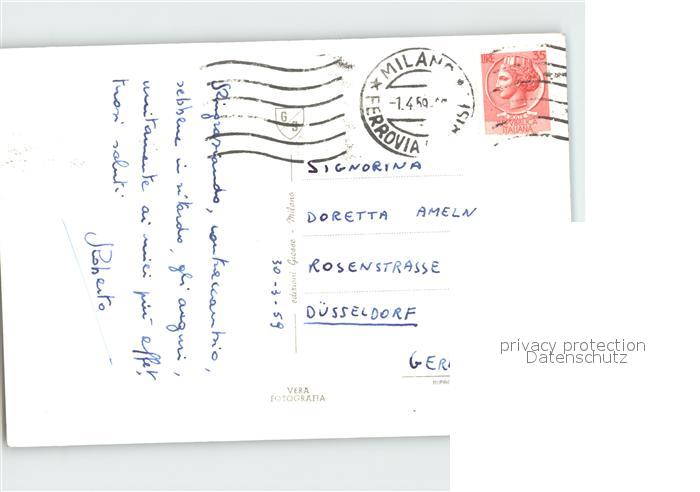 Ringraziando, contraccambio,
sebbene in ritardo, gli auguri,
unitamente ai miei più affet.
tuosi saluti
Roberto
30-3-59
edizioni Giesse - Milano
G S
VERA
FOTOGRAFIA
MILANO
FERROVIA
-1.4.59
LIRE 35
POSTE
REPUBBLICA
ITALIANA
SIGNORINA
DORETTA AMELN
ROSENSTRASSE
DÜSSELDORF
GER
privacy protection
Datenschutz